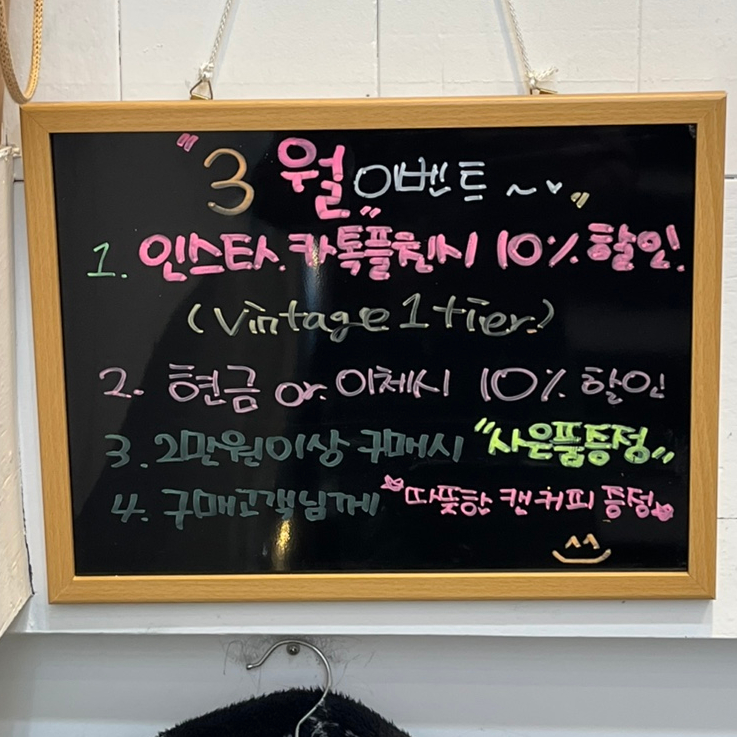 "3월" 이벤트 ~♥"
1. 인스타.카톡플친시 10% 할인.
(Vintage 1 tier.)
2. 현금 or. 이체시 10% 할인
3. 2만원이상 구매시 "사은품증정"
4. 구매고객님께 따뜻한 캔커피 증정